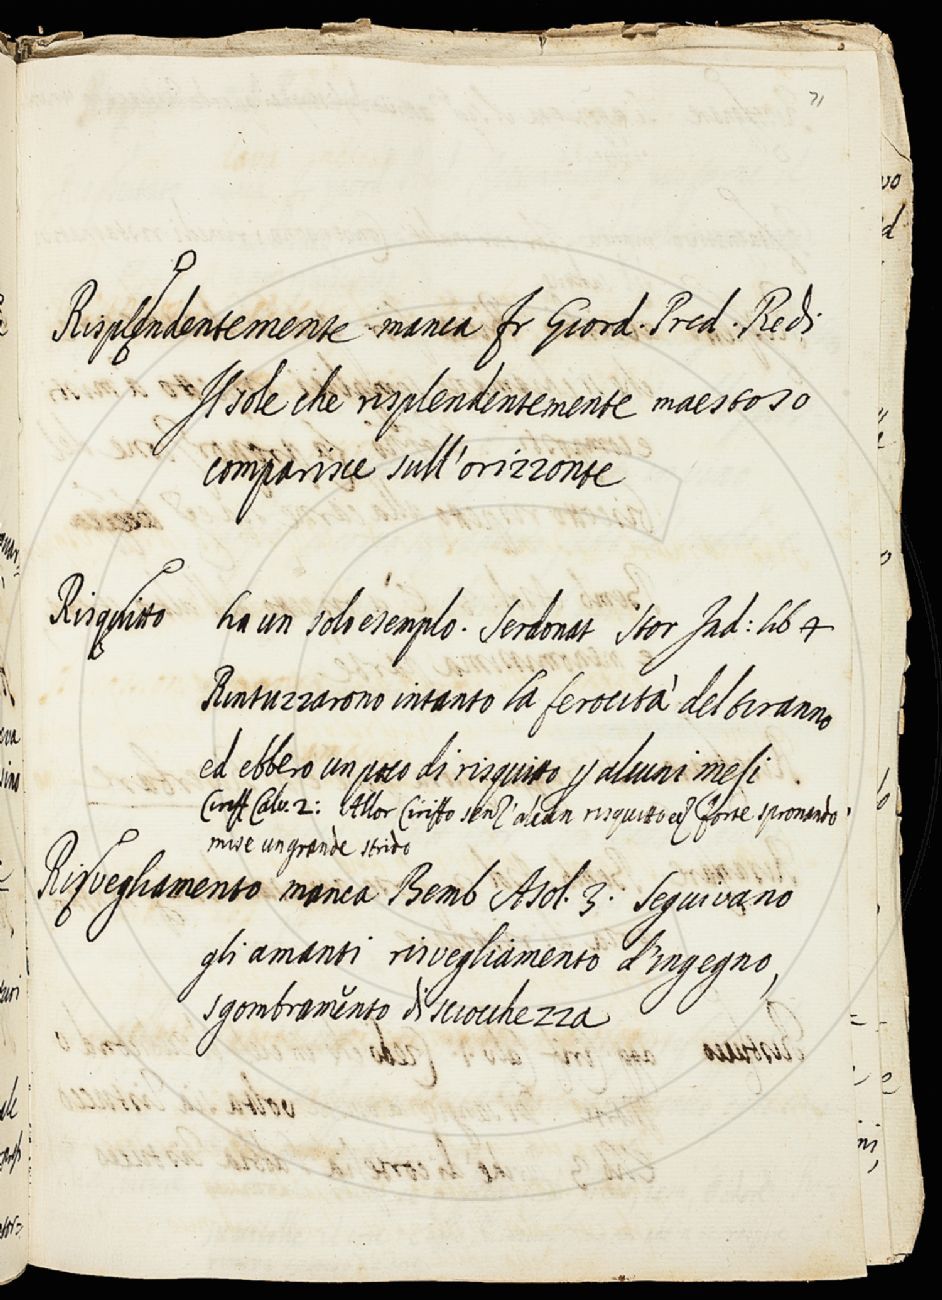 71
Risplendentemente manca fr Giord. Pred. Redi
Il sole che risplendentemente maestoso
comparisce sull'orizzonte
Risquitto ha un solo esemplo. Serdonat Stor Ind: lib 4
Rintuzzarono intanto la ferocità del tiranno
ed ebbero un poco di risquitto p alcuni mesi
Ciriff Calv. 2: Allor Ciriffo senz'alcun risquitto forte spronando
mise un grande strido
Risvegliamento manca Bemb Asol. 3. Seguivano
gli amanti risvegliamento d'ingegno,
sgombramento di sciocchezza